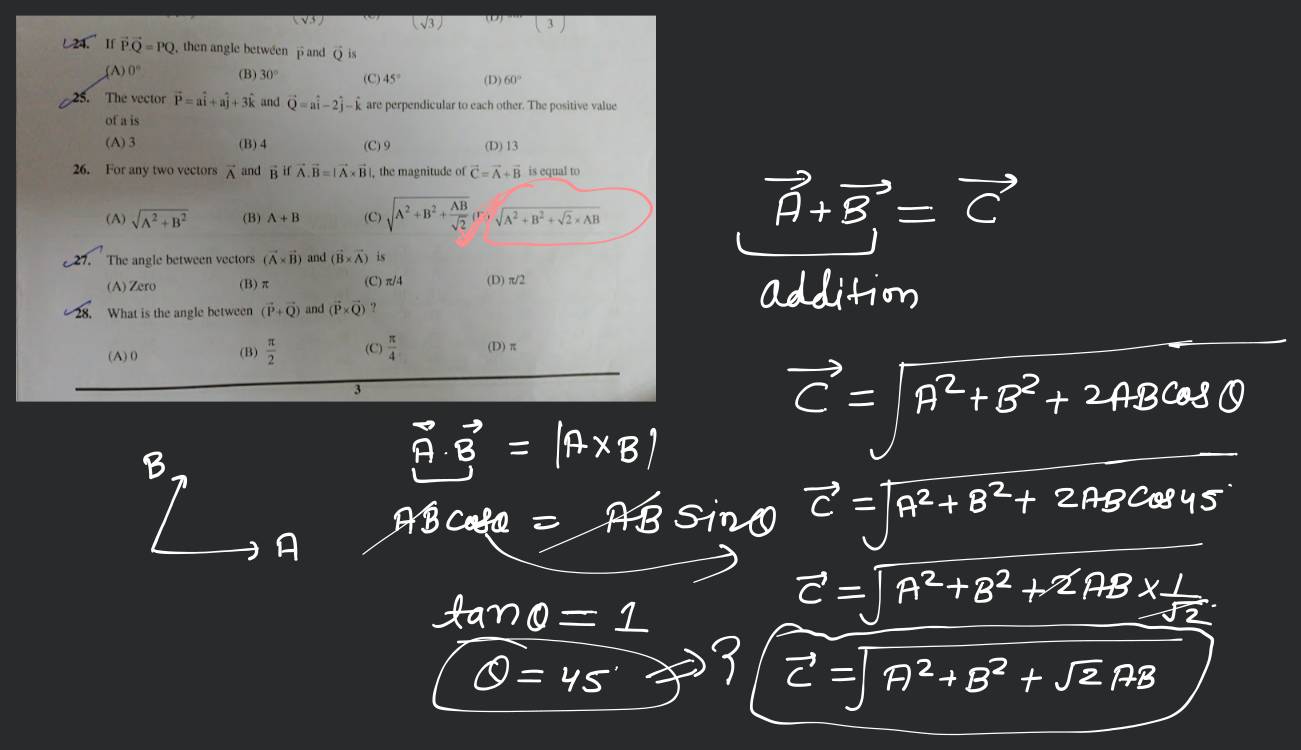 (√3) (√3) (D) ( 3 )
24. If P⃗Q⃗ = PQ, then angle between p⃗ and Q⃗ is
(A) 0° (B) 30° (C) 45° (D) 60°
25. The vector P⃗ = aî + aĵ + 3k̂ and Q⃗ = aî − 2ĵ − k̂ are perpendicular to each other. The positive value
of a is
(A) 3 (B) 4 (C) 9 (D) 13
26. For any two vectors A⃗ and B⃗ if A⃗.B⃗ = |A⃗ × B⃗|, the magnitude of C⃗ = A⃗ + B⃗ is equal to
(A) √(A² + B²) (B) A + B (C) √(A² + B² + AB/√2) √(A² + B² + √2 × AB)
27. The angle between vectors (A⃗ × B⃗) and (B⃗ × A⃗) is
(A) Zero (B) π (C) π/4 (D) π/2
28. What is the angle between (P⃗ + Q⃗) and (P⃗ × Q⃗) ?
(A) 0 (B) π/2 (C) π/4 (D) π
3
A⃗ + B⃗ = C⃗
addition
C⃗ = √(A² + B² + 2AB cos θ)
B
A
A⃗ . B⃗ = |A × B|
AB cosθ = AB sinθ
tanθ = 1
θ = 45° ?
C⃗ = √(A² + B² + 2AB cos 45°)
C⃗ = √(A² + B² + 2AB × 1/√2)
C⃗ = √(A² + B² + √2 AB)